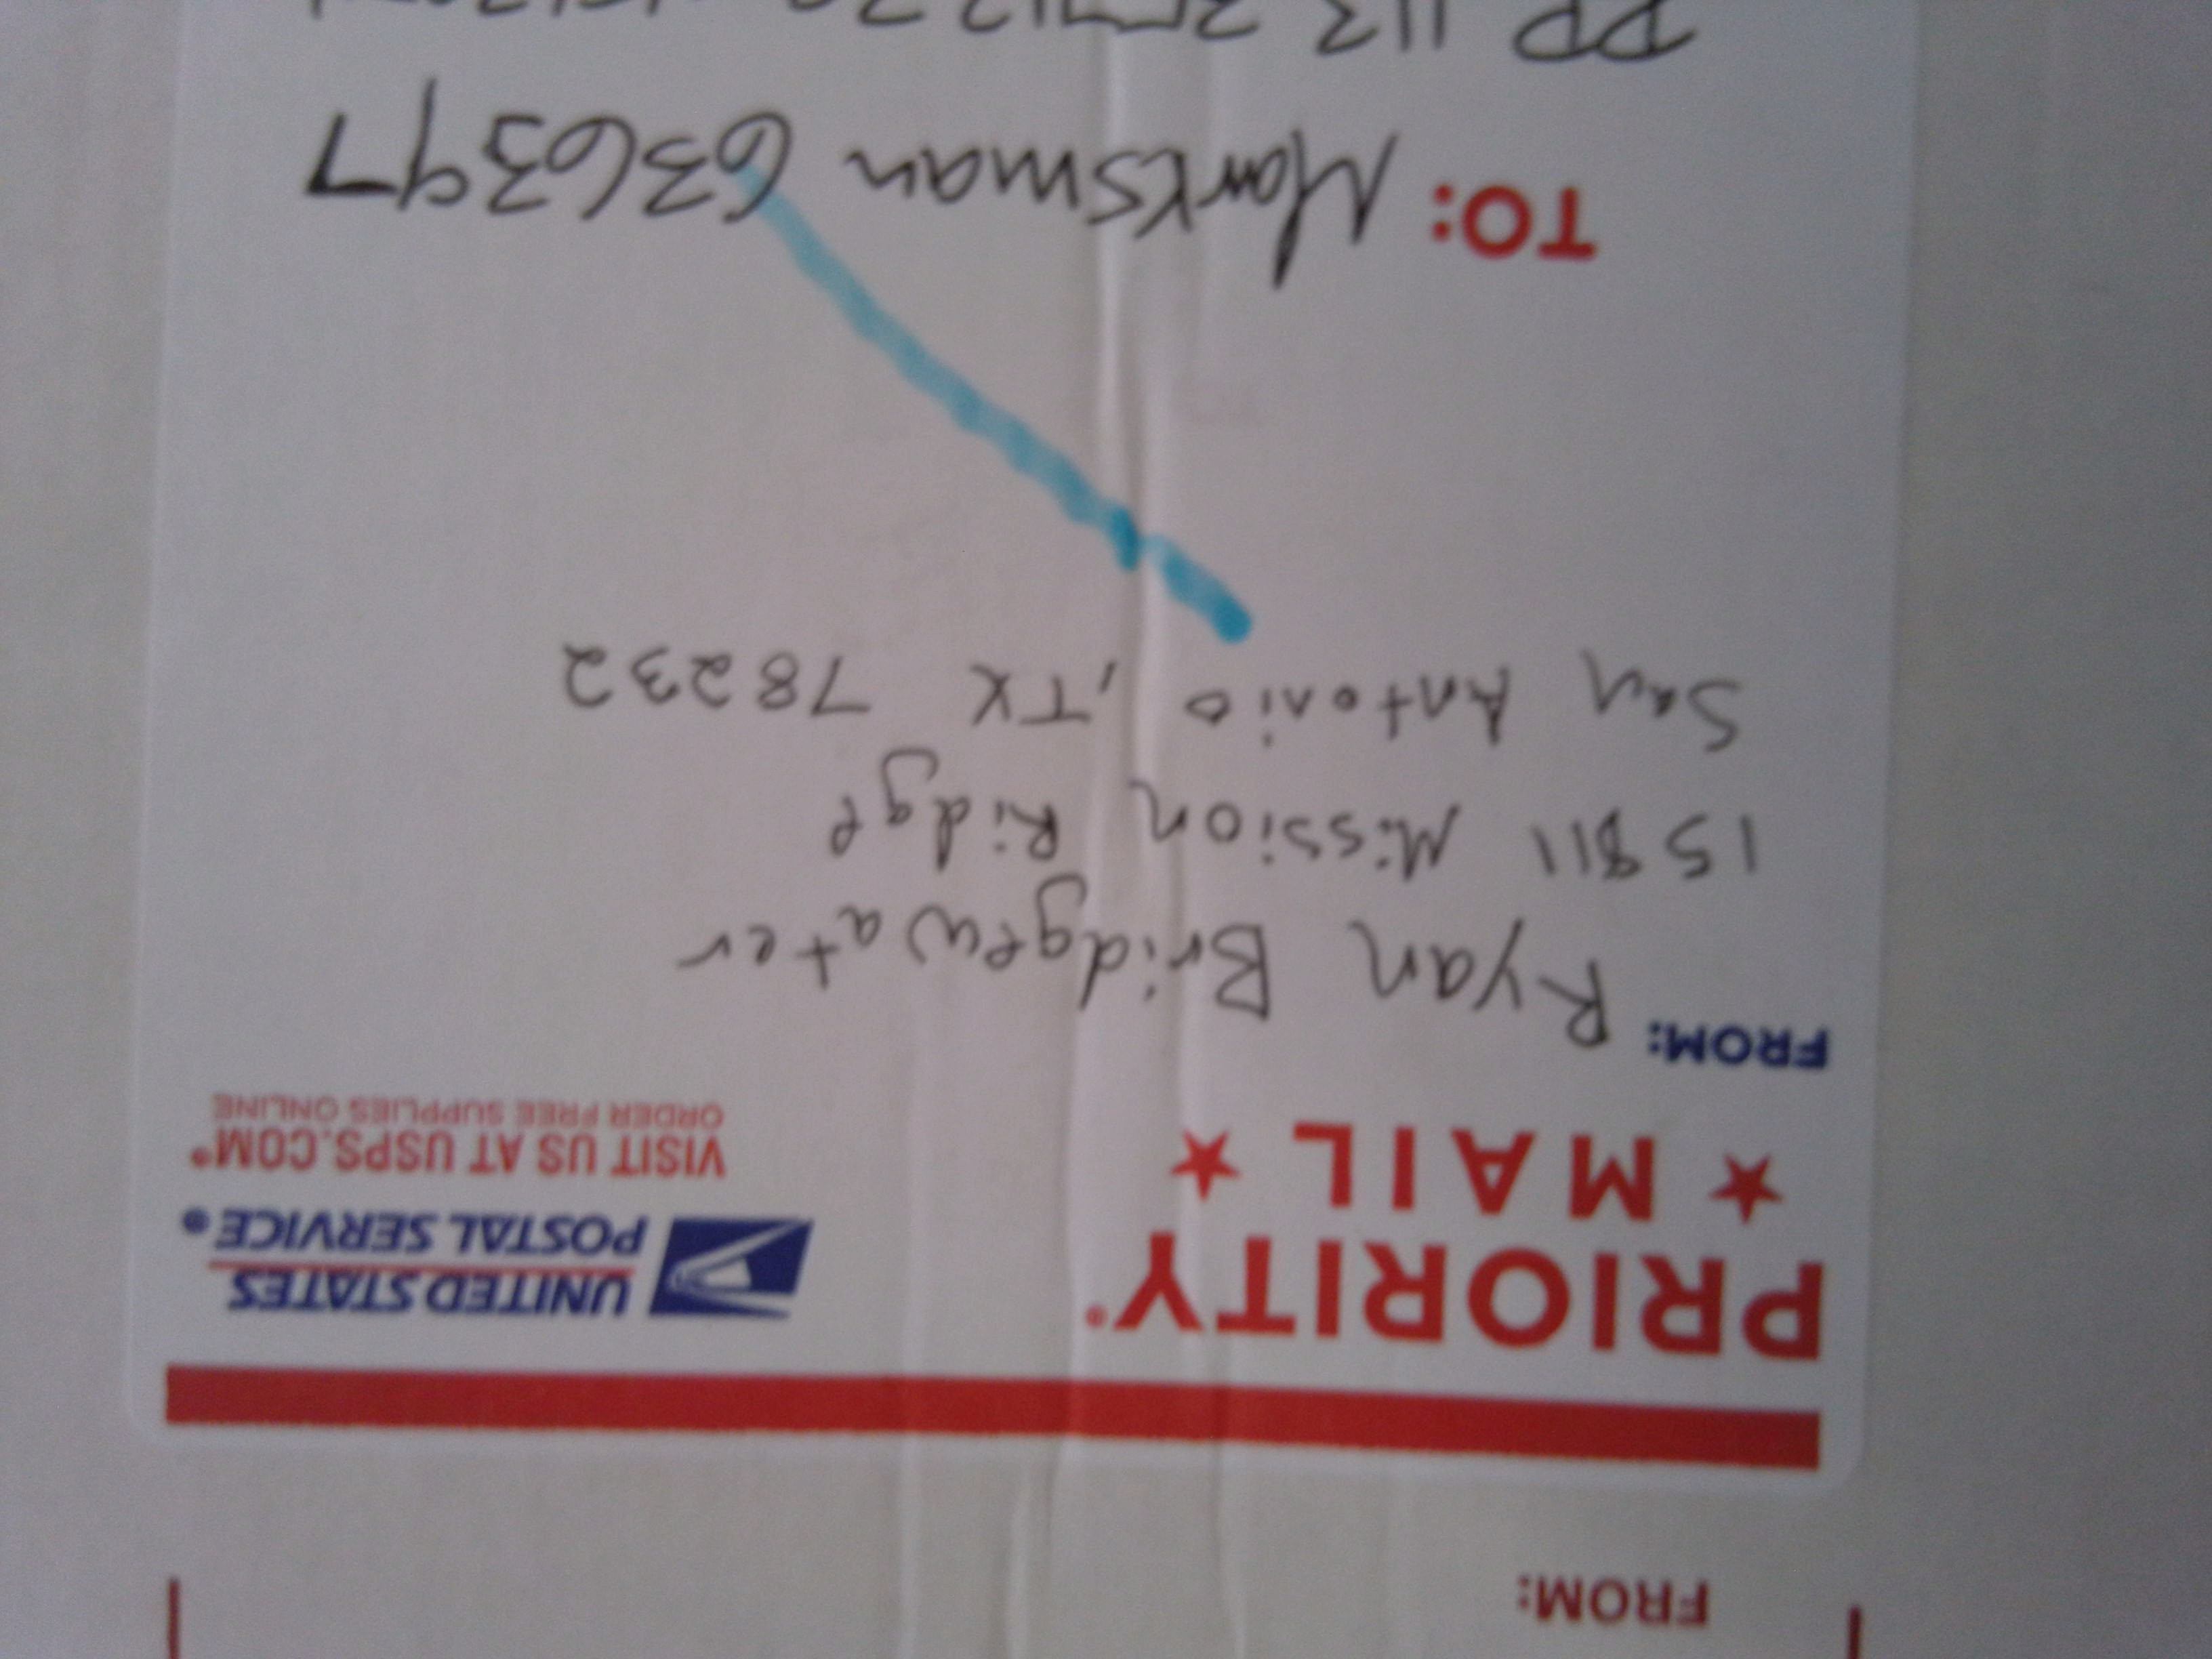 FROM:
PRIORITY®
★ MAIL ★
UNITED STATES
POSTAL SERVICE®
VISIT US AT USPS.COM®
ORDER FREE SUPPLIES ONLINE
FROM: Ryan Bridgewater
15811 Mission Ridge
San Antonio, TX 78232
TO: Marksman 636397
PP 113